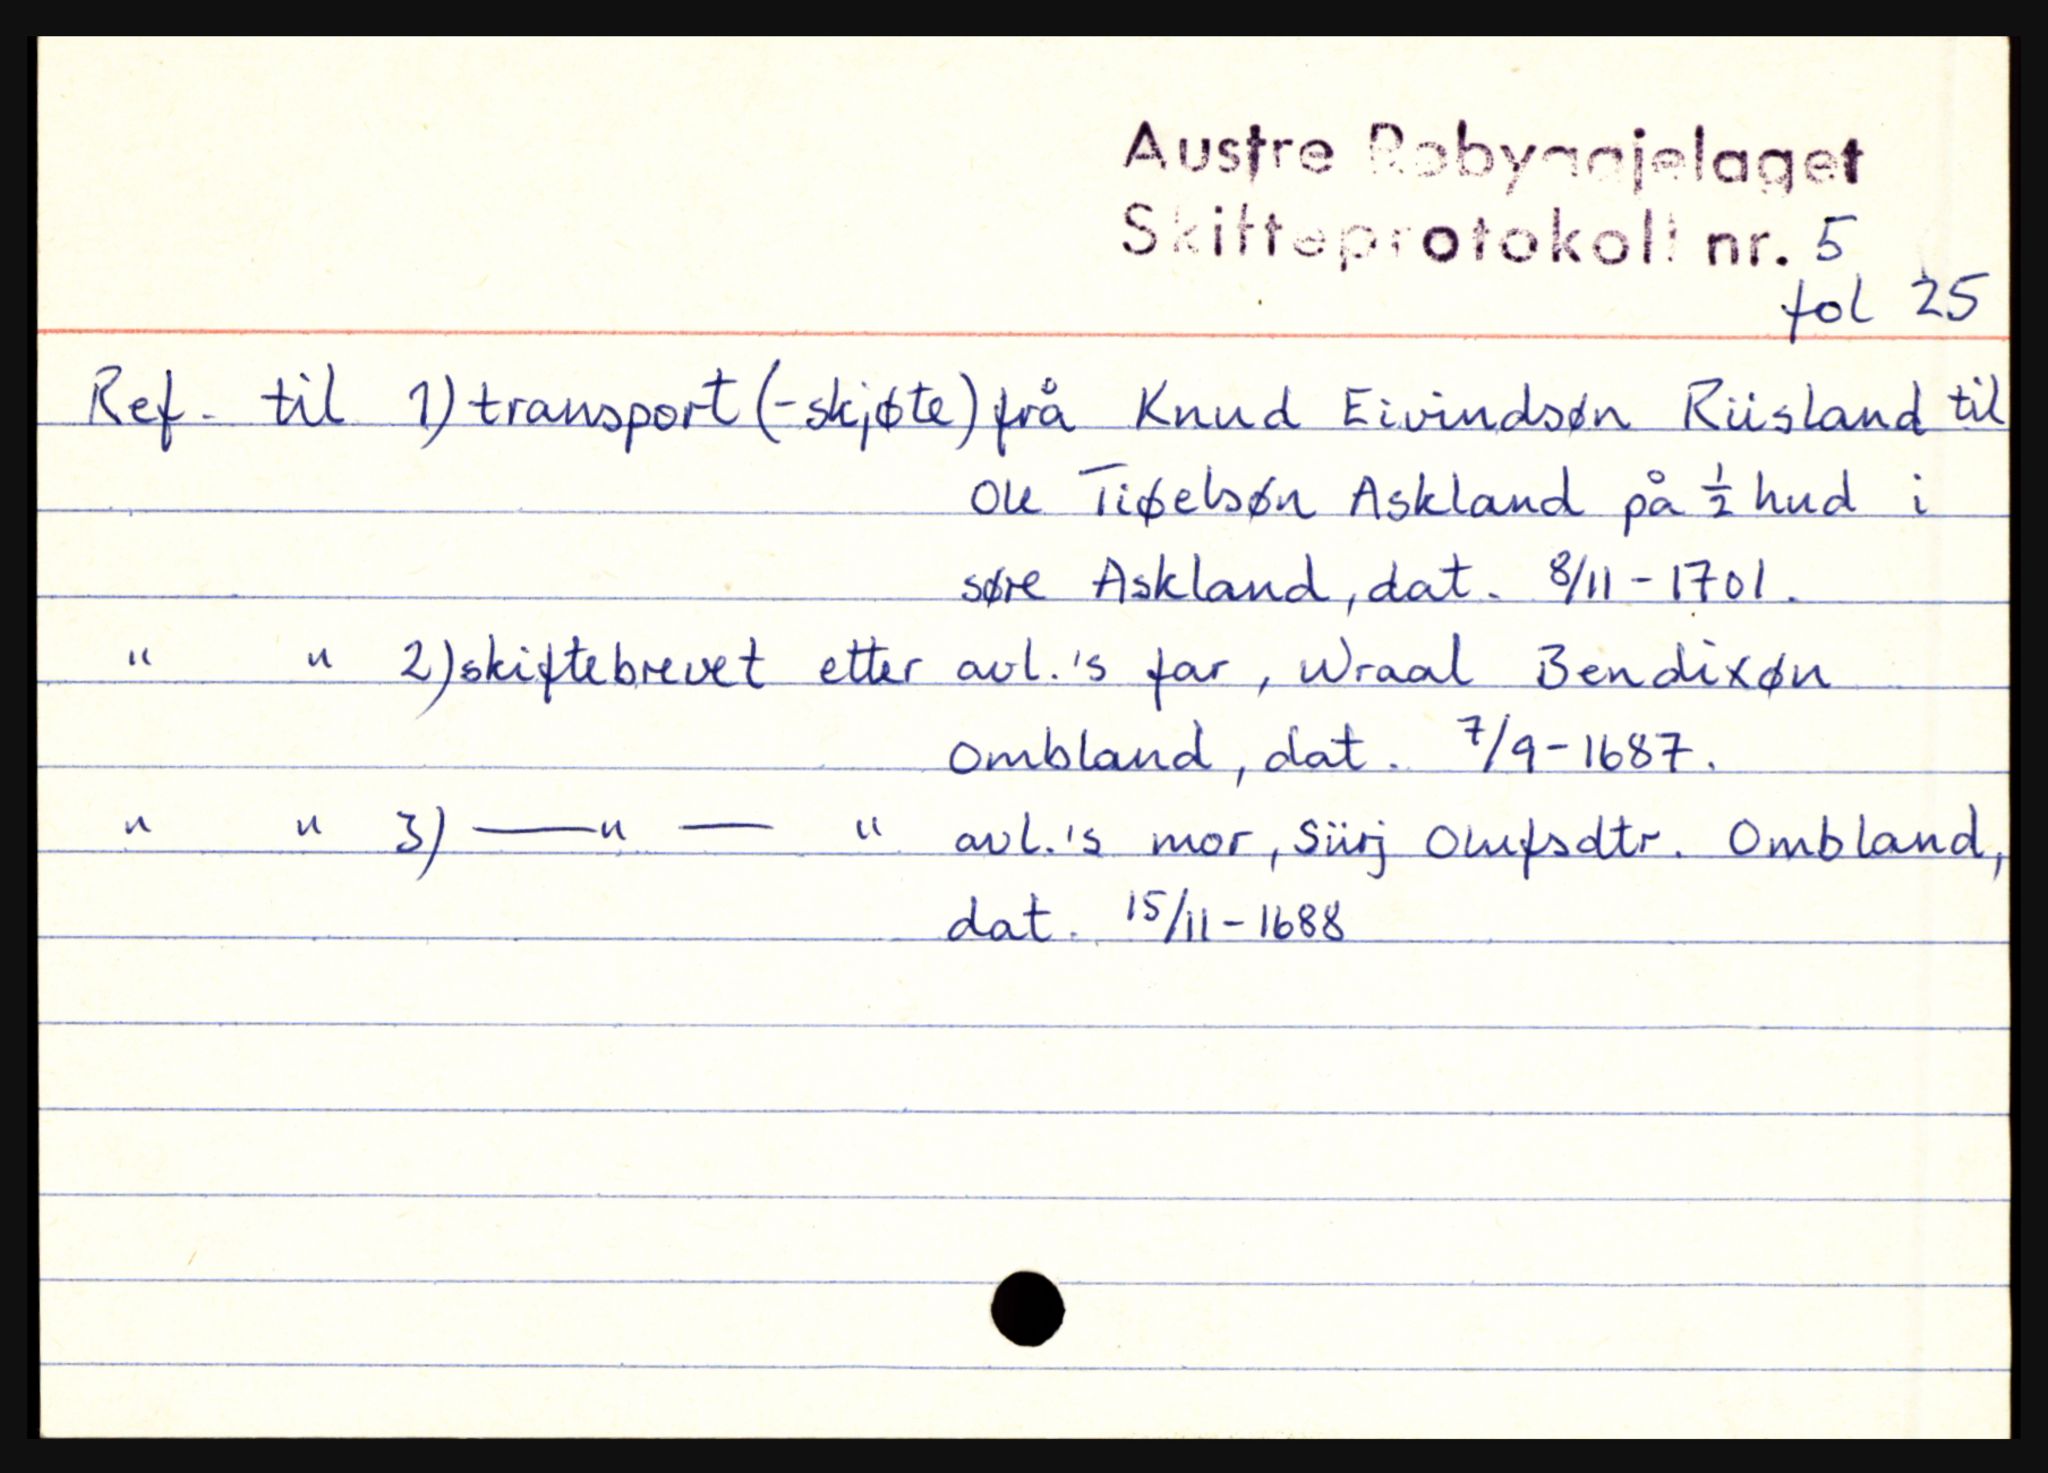 Austre Robyggjelaget
Skifteprotokoll nr. 5
fol 25
Ref. til 1) transport (-skjøte) frå Knud Eivindsøn Riisland til
Ole Tiøelsøn Askland på ½ hud i
søre Askland, dat. 8/11-1701.
" " 2) skiftebrevet etter avl.'s far, Wraal Bendixøn
Ombland, dat. 7/9-1687.
" " 3) —"— " avl.'s mor, Siirj Olufsdtr. Ombland,
dat. 15/11-1688